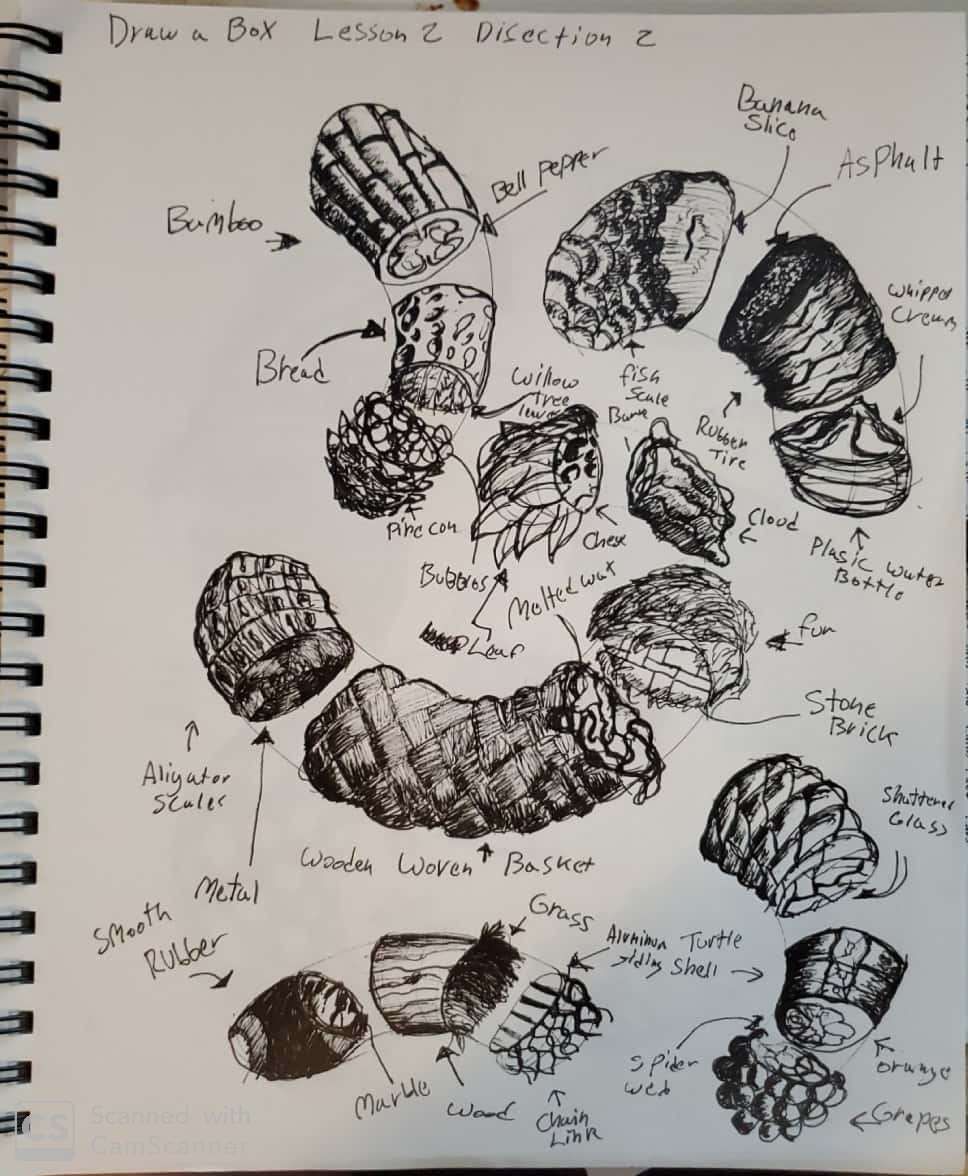 Draw a Box Lesson 2 Disection 2
Banana
Slice
Asphalt
Bell Pepper
Bamboo
Whipped
Cream
Bread
Willow
Tree
fish
Scale
Rubber
Tire
Pinecon
Cloud
Plasic Water
Bottle
Bubbles
Melted wax
Leaf
fur
Stone
Brick
Aligator
Scales
Shattered
Glass
Wooden Woven Basket
Metal
Smooth
Rubber
Grass
Aluminum
siding
Turtle
Shell
Spider
web
Orange
Marble
Wood
Chain
Link
Grapes
CS Scanned with
CamScanner